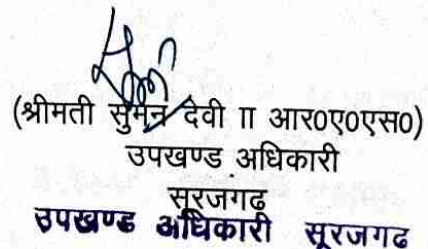 (श्रीमती सुमन देवी II आर०ए०एस०)
उपखण्ड अधिकारी
सूरजगढ
उपखण्ड अधिकारी सूरजगढ